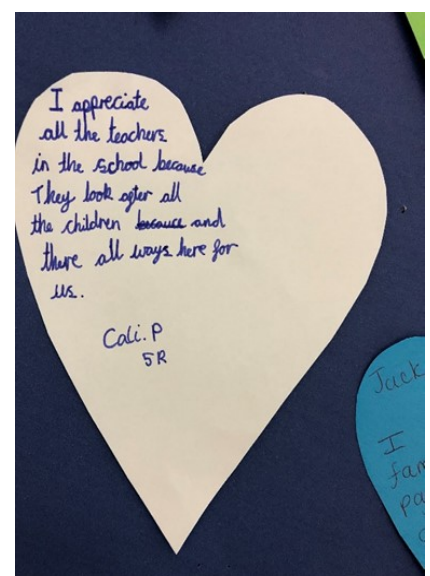 I appreciate
all the teachers
in the school because
They look after all
the children because and
there all ways here for
us.
Cali.P
5R
Jack
I
fam
pa